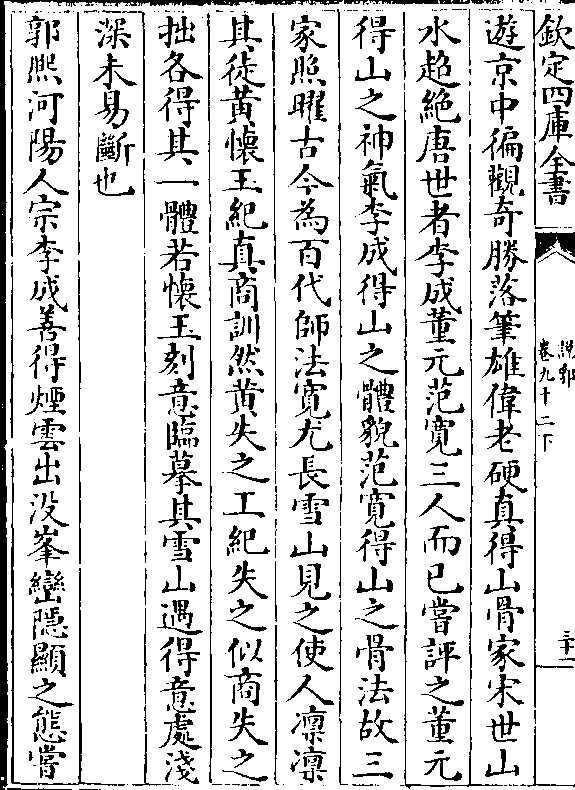 欽定四庫全書
說郛
卷九十二下
三十一
遊京中徧觀奇勝落筆雄偉老硬真得山骨家宋世山
水超絶唐世者李成董元范寬三人而已嘗評之董元
得山之神氣李成得山之體貌范寛得山之骨法故三
家照曜古今為百代師法寛尤長雪山見之使人凛凛
其徒黄懷玉紀真商訓然黄失之工紀失之似商失之
拙各得其一體若懷玉刻意臨摹其雪山遇得意處淺
深未易斷也
郭熙河陽人宗李成善得煙雲出没峯巒隠顯之態嘗